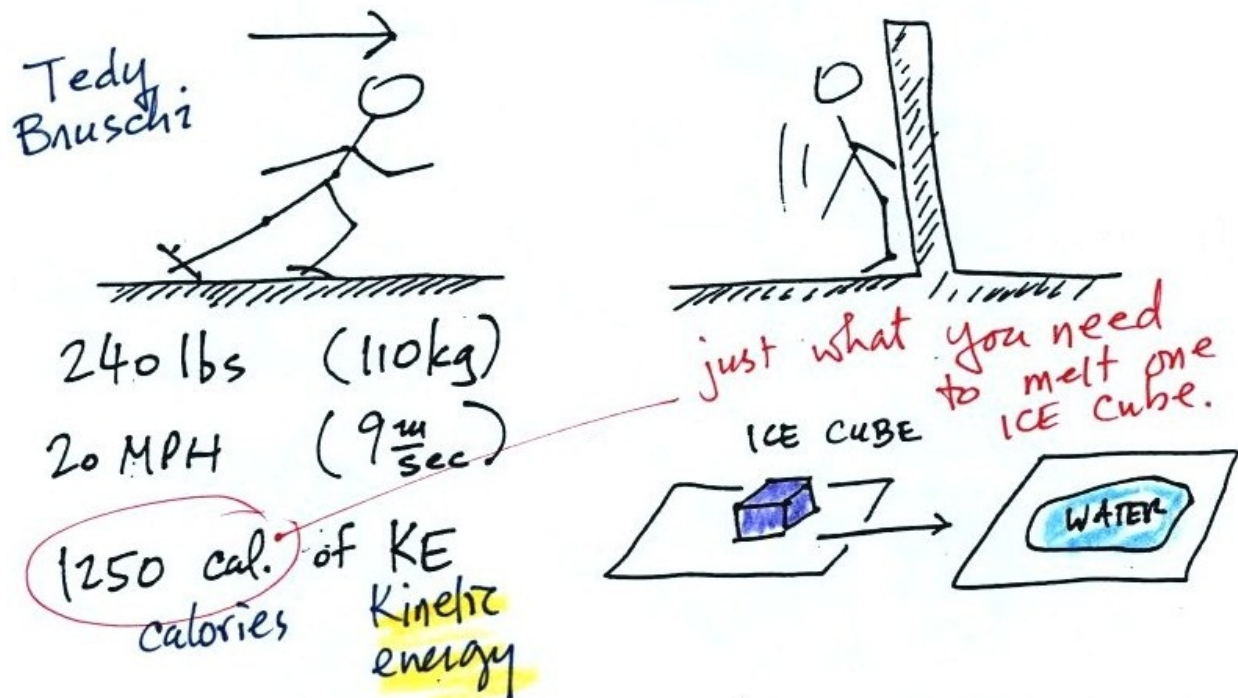 Tedy
Bruschi
240 lbs (110kg)
20 MPH (9 m/sec)
1250 cal. of KE
calories
Kinetic
energy
just what you need
to melt one
ICE Cube.
ICE CUBE
WATER